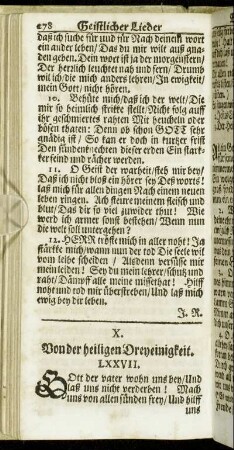 278 Geistlicher Lieder
daß ich suche für und für Nach deinem wort
ein ander leben/ Das du mir wilt auß gna-
den geben. Dein wort ist ja der morgenstern/
Der herzlich leuchtet nah und fern/ Drumb
wil ich/ die mich anders lehren/ In ewigkeit/
mein Gott/ nicht hören.
10. Behüte mich/ daß ich der welt/ Die
mir so heimlich stricke stellt/ Nicht folg auff
ihr geschmiertes rahten Mit heucheln oder
bösen thaten: Denn ob schon GOTT sehr
gnädig ist/ So kan er doch in kurtzer frist
Den sündenknechten dieser erden Ein star-
ker feind und rächer werden.
11. O Geist der warheit/ steh mir bey/
Daß ich nicht bloß ein hörer sey Deß worts!
laß mich für allen dingen Nach einem neuen
leben ringen. Ach steure meinem fleisch und
blut/ Das dir so viel zuwider thut! Wie
word ich armer sonst bestehen/ Wenn nun
die welt soll untergehen?
12. HERR tröste mich in aller noht! Ja
stärkte mich/ wann nur der tod Die seele wil
vom leibe scheiden/ Alsdenn versüsse mir
mein leiden! Sey du mein lehrer/ schutz und
raht/ Dämpff alle meine missethat! Hilff
noht und tod mir überstreben/ Und laß mich
ewig bey dir leben.
J. R.
X.
Von der heiligen Dreyeinigkeit.
LXXVII.
GOtt der vater wohn uns bey/ Und
laß uns nicht verderben! Mach
uns von allen sünden frey/ Und hilff
uns